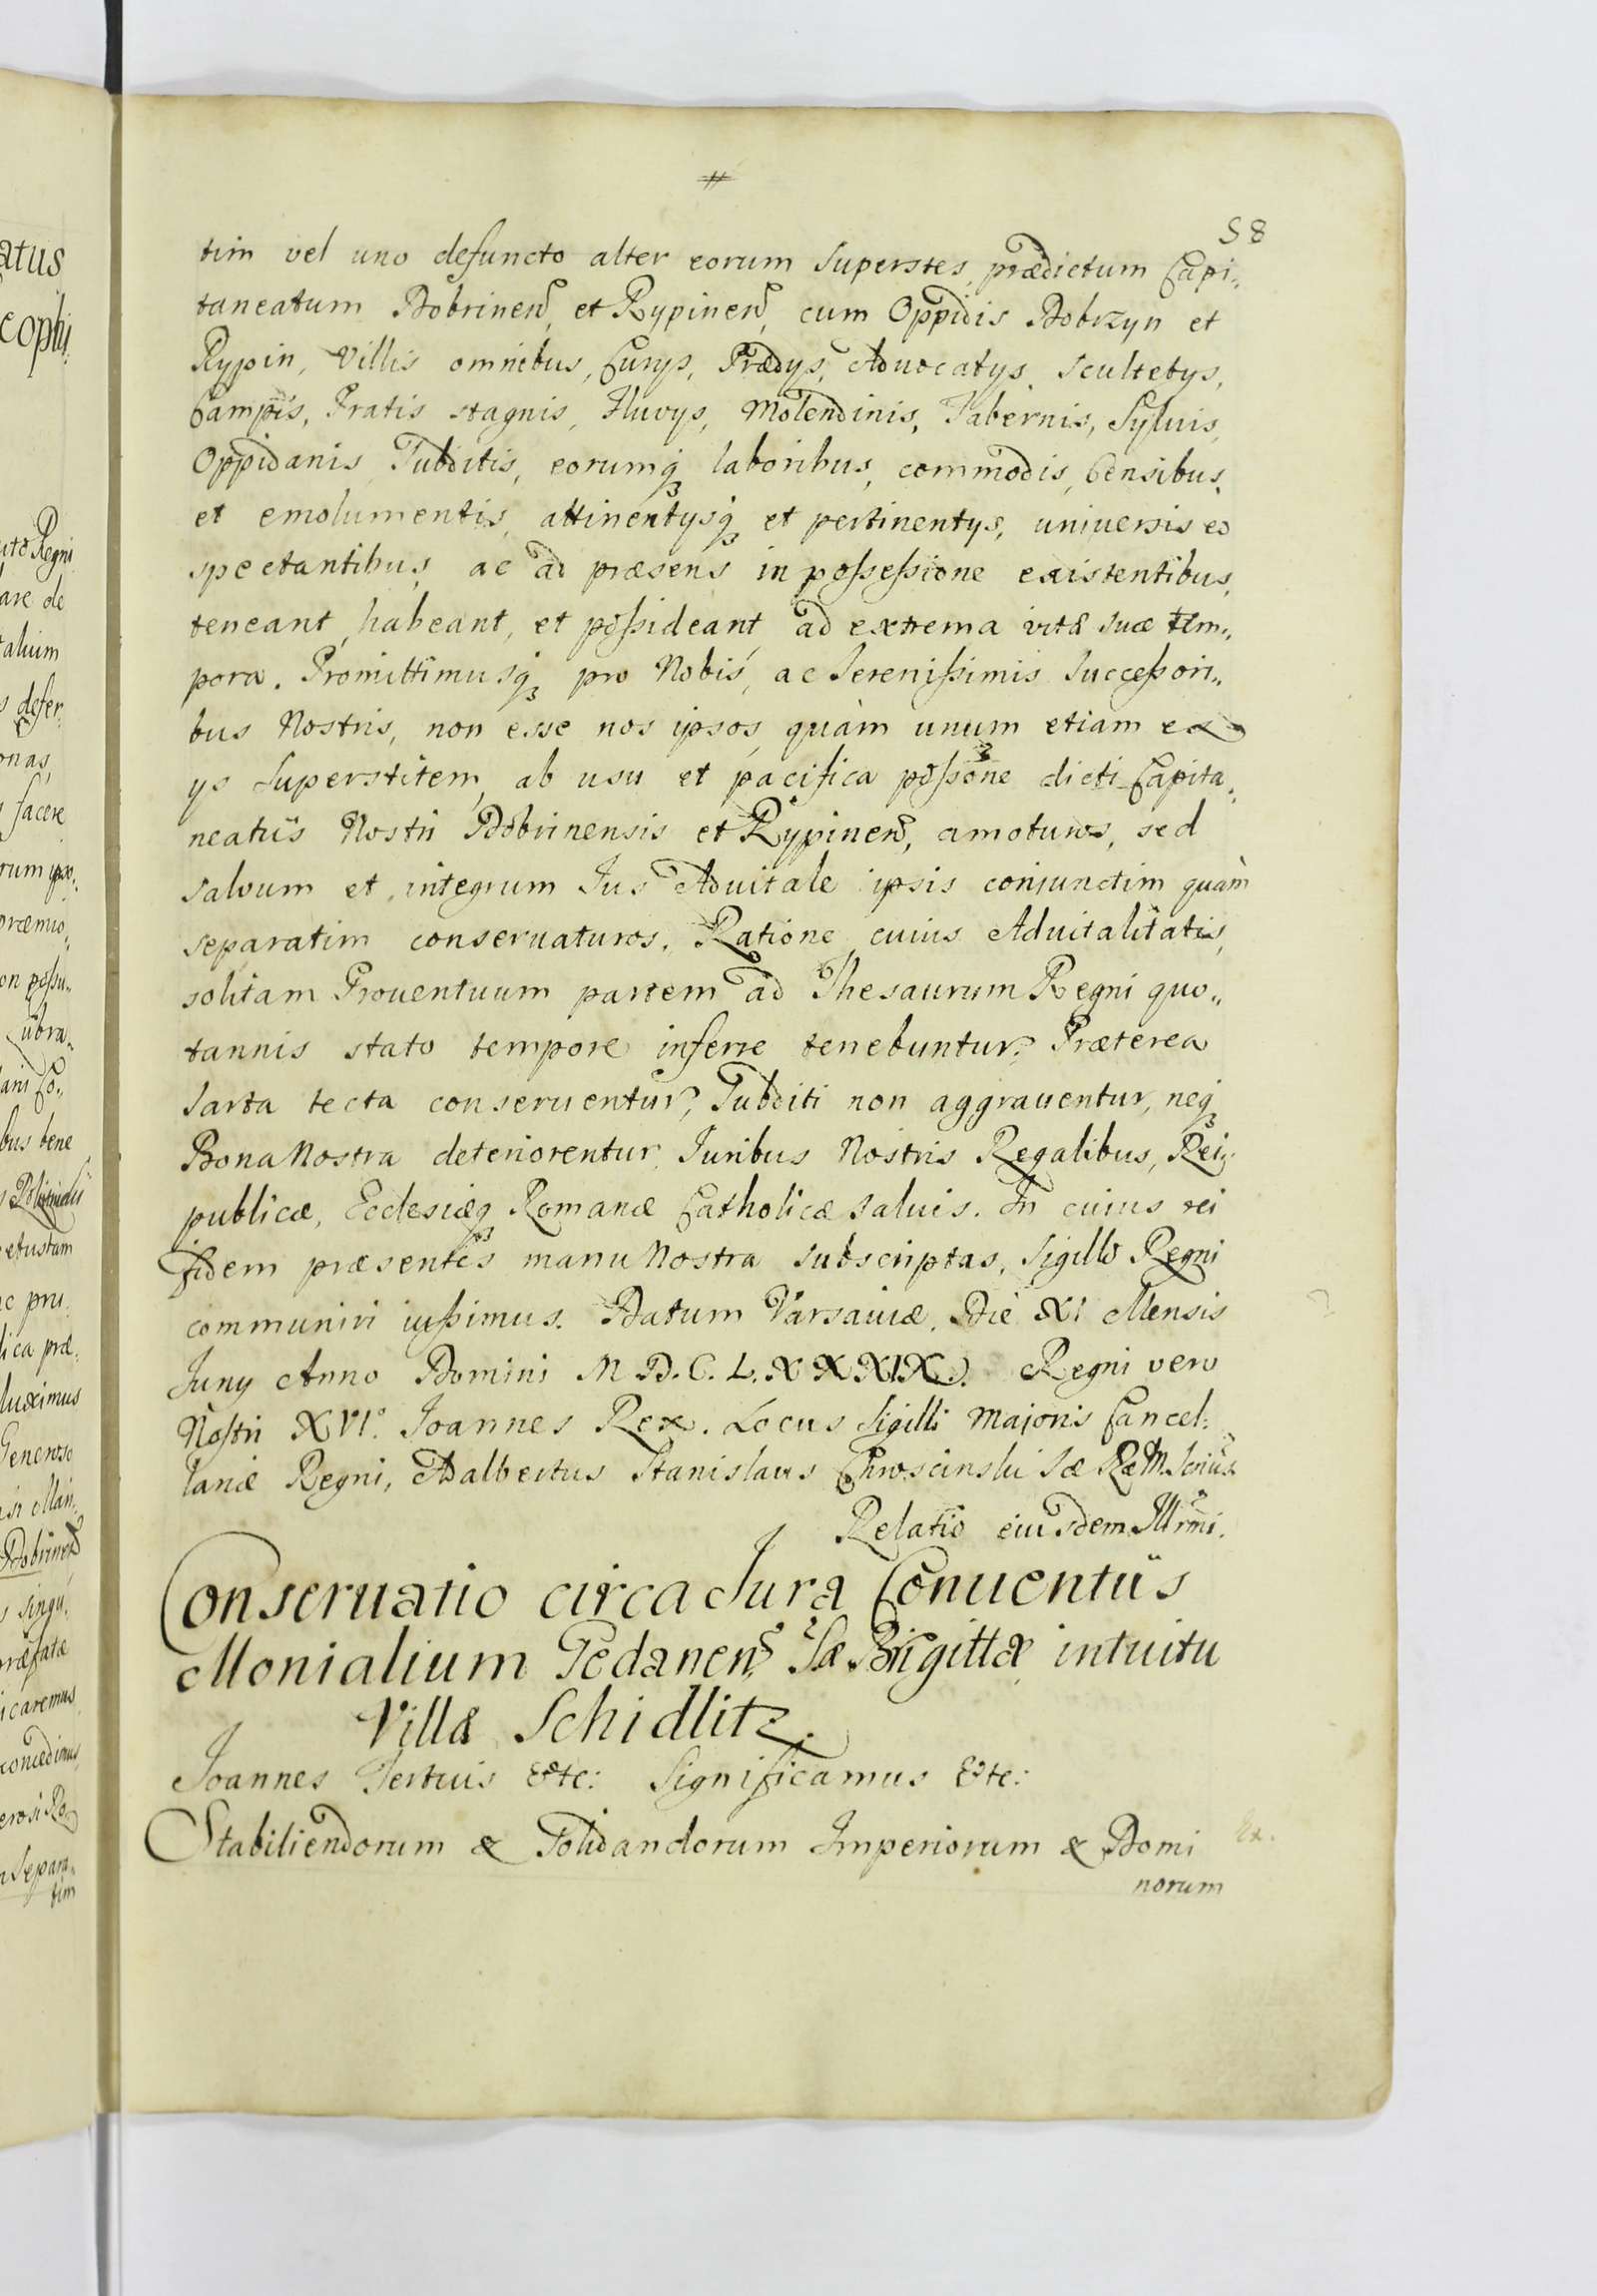 58
tim vel uno defuncto alter eorum Superstes, prædictum Capi„
taneatum Dobrinen̄, et Rypinen̄, cum Oppidis Dobrzyn et
Rypin, Villis omnibus, Curys, Prædys, Advocatys, Scultetys,
Campis, Pratis stagnis, Fluvys, Molendinis, Tabernis, Sylvis,
Oppidanis Subditis, eorumq̨ laboribus, commodis, Censibus,
et emolumentis, attinentysq̨ et pertinentys, universis eo
spectantibus, ac ad præsens in possessione existentibus,
teneant, habeant, et possideant, ad extrema vitæ suæ tem„
pora. Promittimusq̨ pro Nobis, ac Serenissimis Successori„
bus Nostris, non esse nos ipsos, quàm unum etiam ex
ys Superstitem, ab usu et pacifica possõne dicti Capita„
neatûs Nostri Dobrinensis et Rypinen̄, amoturos, sed
salvum et integrum Jus Advitale ipsis coniunctim quàm
separatim conservaturos. Ratione cuius Advitalitatis,
solitam Proventuum partem ad Thesaurum Regni quo„
tannis stato tempore inferre tenebuntur. Præterea
Sarta tecta conserventur, Subditi non aggraventur, neq̨
Bona Nostra deteriorentur. Juribus Nostris Regalibus, Rei„
publicæ, Ecclesiæq̨ Romanæ Catholicæ salvis. In cuius rei
fidem præsentes manu Nostra subscriptas, Sigillo Regni
communiri iussimus. Datum Varsaviæ, Die XI Mensis
Juny Anno Domini M.D.C.L.XXXIX. Regni vero
Nostri XVI.° Joannes Rex. Locus Sigilli Majoris Cancel„
lariæ Regni, Adalbertus Stanislaus Chroscinski Sæ Ræ M. Scriûs
Relatio eiusdem Illrm̃i.
Conservatio circa Jura Conventûs
Monialium Gedanen̄ Sæ Brigittæ intuitu
Villæ Schidlitz.
Joannes Tertius &tc: Significamus &tc:
Stabiliendorum & Solidandorum Imperiorum & Domi
norum